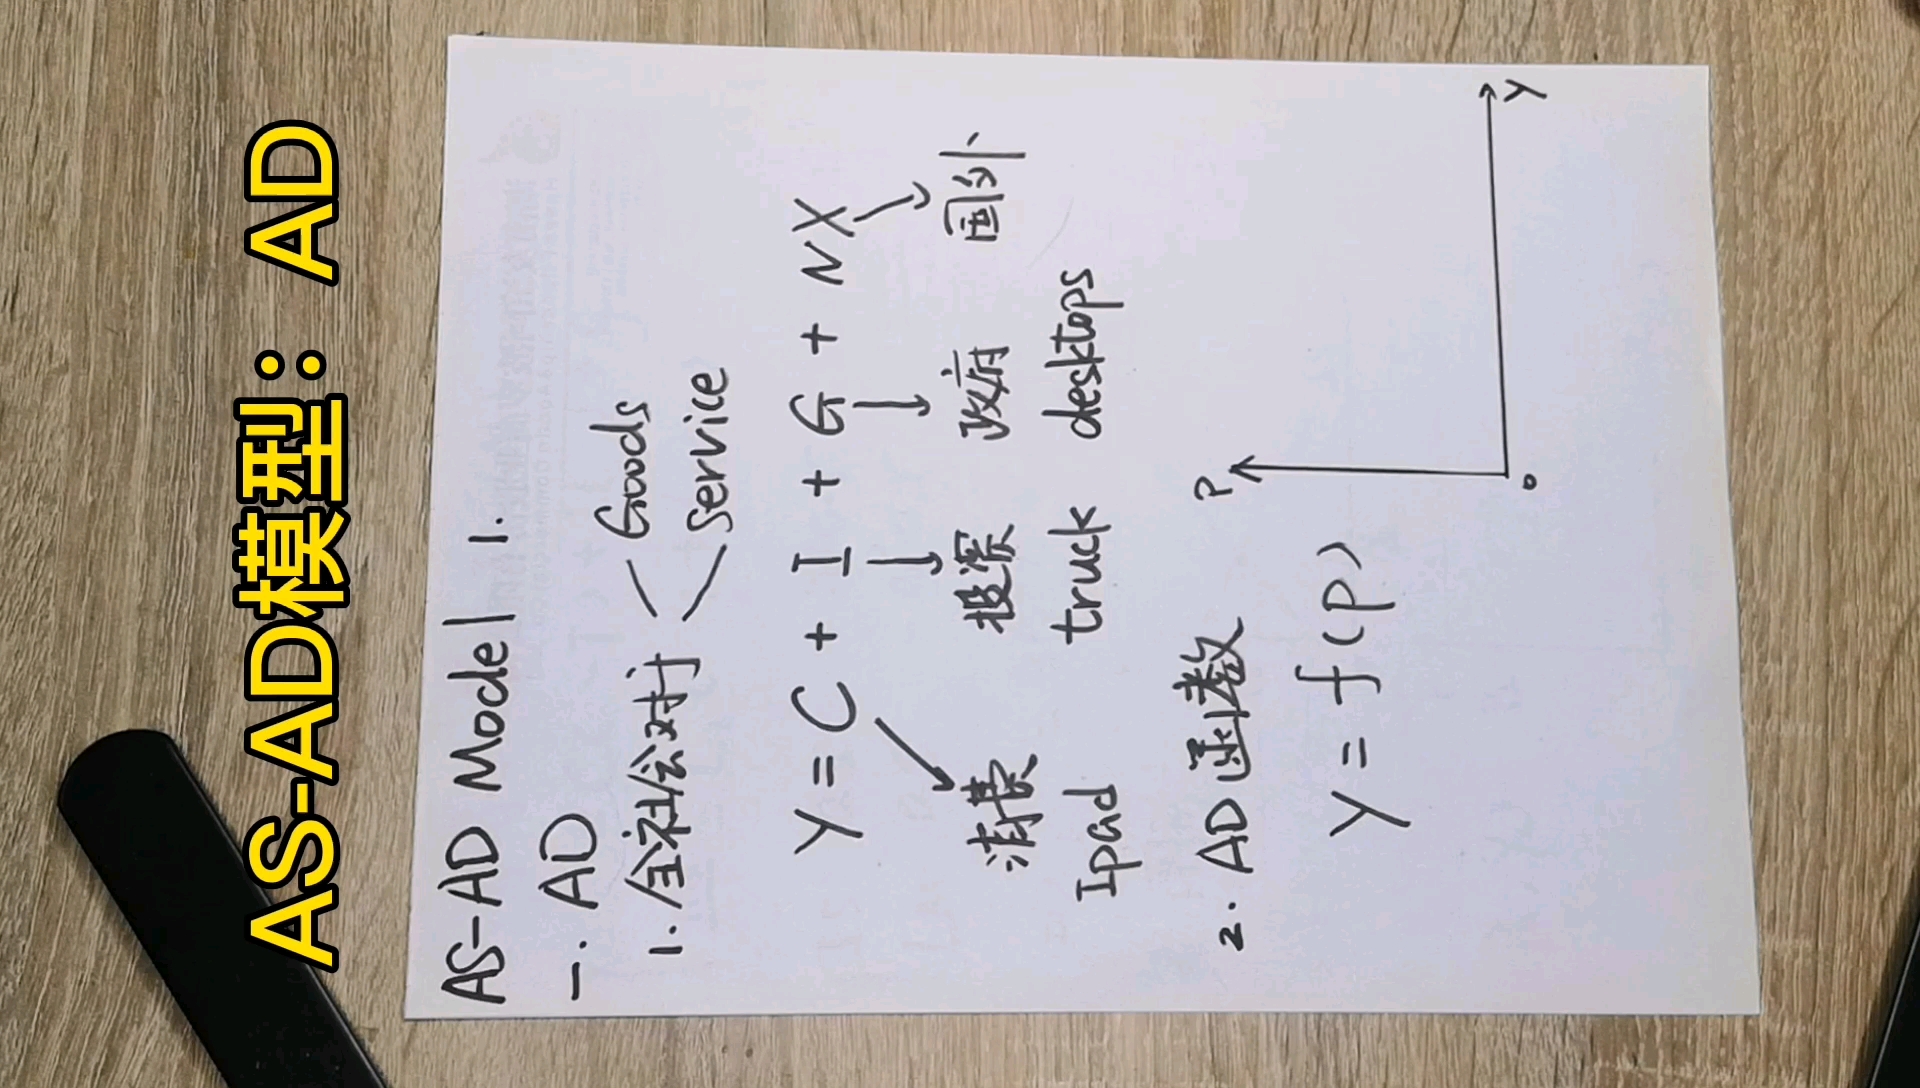 AS-AD模型：AD
AS-AD Model 1.
一. AD
1. 全社会对于 Goods
Service
Y = C + I + G + NX
消费 投资 政府 国外
Ipad truck desktops
2. AD函数
Y = f(P)
P
Y
0